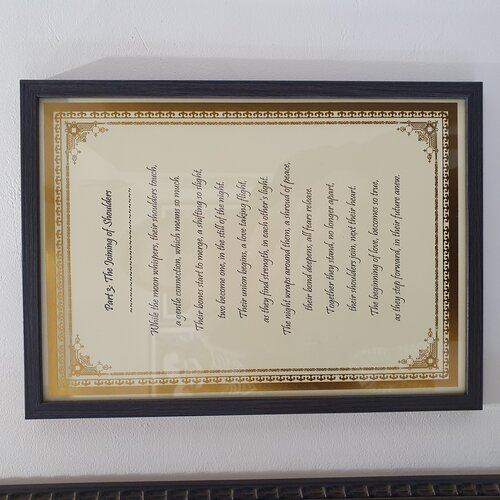 Part 3: The Joining of Shoulders
~~~~~~~~~~~~~~~~~~~~~~~~
While the moon whispers, their shoulders touch,
a gentle connection, which means so much.
Their bones start to merge, a shifting so slight,
two become one, in the still of the night.
Their union begins, a love taking flight,
as they find strength, in each other's light.
The night wraps around them, a shroud of peace,
their bond deepens, all fears release.
Together they stand, no longer apart,
their shoulders join, next their heart.
The beginning of love, becomes so true,
as they step forward, in their future anew.